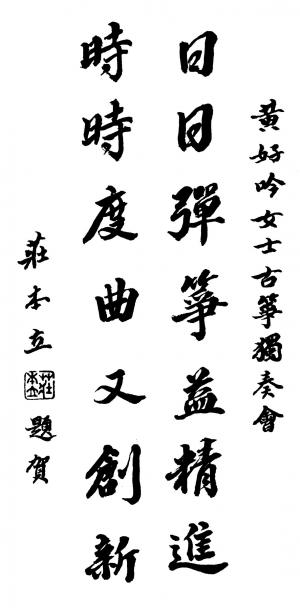 黃好吟女士古箏獨奏會
日日彈箏益精進
時時度曲又創新
莊本立 莊本立 題賀